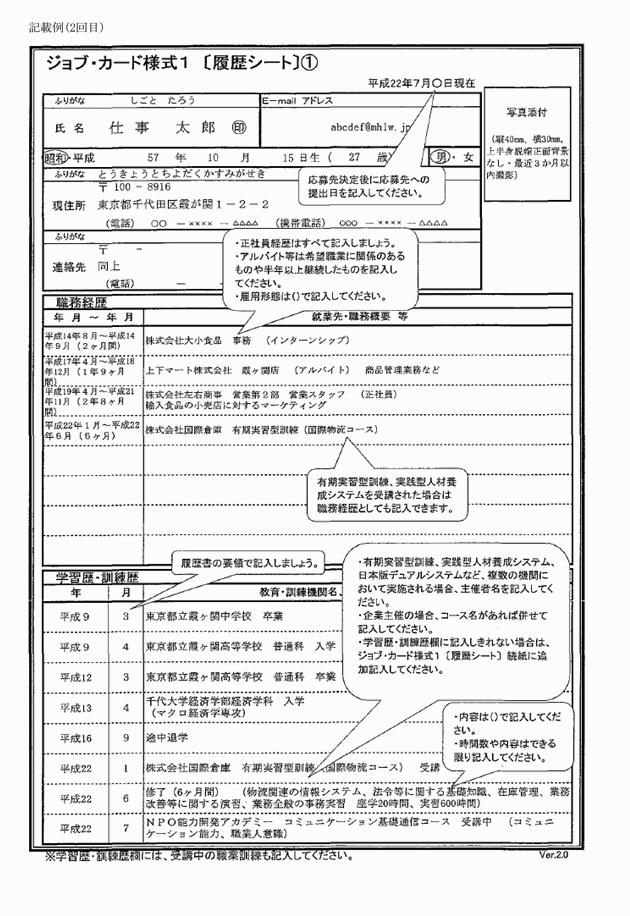 記載例(2回目)
ジョブ・カード様式1 〔履歴シート〕①
平成22年7月〇日現在
ふりがな しごと たろう
E-mail アドレス
氏 名 仕 事 太 郎 ㊞
abcdef@mhlw.jp
写真添付
(縦40mm、横30mm、
上半身脱帽正面背景
なし・最近3か月以
内撮影)
昭和・平成 57 年 10 月 15日生 ( 27 歳 男・女
ふりがな とうきょうとちよだくかすみがせき
〒100-8916
現住所 東京都千代田区霞が関1-2-2
(電話) 〇〇 - ×××× - △△△△ (携帯電話) 〇〇〇 - ×××× - △△△△
応募先決定後に応募先への
提出日を記入してください。
ふりがな
〒 -
連絡先 同上
(電話) - -
・正社員経歴はすべて記入しましょう。
・アルバイト等は希望職業に関係のある
ものや半年以上継続したものを記入し
てください。
・雇用形態は()で記入してください。
職務経歴
年 月 ～ 年 月 就業先・職務概要 等
平成14年8月～平成14
年9月(2ヶ月間)
株式会社大小食品 事務 (インターンシップ)
平成17年4月～平成18
年12月(1年9ヶ月
間)
上下マート株式会社 霞ヶ関店 (アルバイト) 商品管理業務など
平成19年4月～平成21
年11月(2年8ヶ月
間)
株式会社左右商事 営業第2部 営業スタッフ (正社員)
輸入食品の小売店に対するマーケティング
平成22年1月～平成22
年6月(6ヶ月)
株式会社国際倉庫 有期実習型訓練(国際物流コース)
有期実習型訓練、実践型人材養
成システムを受講された場合は
職務経歴としても記入できます。
履歴書の要領で記入しましょう。
・有期実習型訓練、実践型人材養成システム、
日本版デュアルシステムなど、複数の機関に
おいて実施される場合、主催者名を記入してく
ださい。
・企業主催の場合、コース名があれば併せて
記入してください。
・学習歴・訓練歴欄に記入しきれない場合は、
ジョブ・カード様式1〔履歴シート〕続紙に追
加記入してください。
学習歴・訓練歴
年 月 教育・訓練機関名、
平成9 3 東京都立霞ヶ関中学校 卒業
平成9 4 東京都立霞ヶ関高等学校 普通科 入学
平成12 3 東京都立霞ヶ関高等学校 普通科 卒業
平成13 4 千代大学経済学部経済学科 入学
(マクロ経済学専攻)
平成16 9 途中退学
・内容は()で記入してくだ
さい。
・時間数や内容はできる
限り記入してください。
平成22 1 株式会社国際倉庫 有期実習型訓練(国際物流コース) 受講
平成22 6 修了(6ヶ月間) (物流関連の情報システム、法令等に関する基礎知識、在庫管理、業務
改善等に関する演習、業務全般の事務実習 座学20時間、実習600時間)
平成22 7 NPO能力開発アカデミー コミュニケーション基礎通信コース 受講中 (コミュニ
ケーション能力、職業人意識)
※学習歴・訓練歴欄には、受講中の職業訓練も記入してください。
Ver.2.0